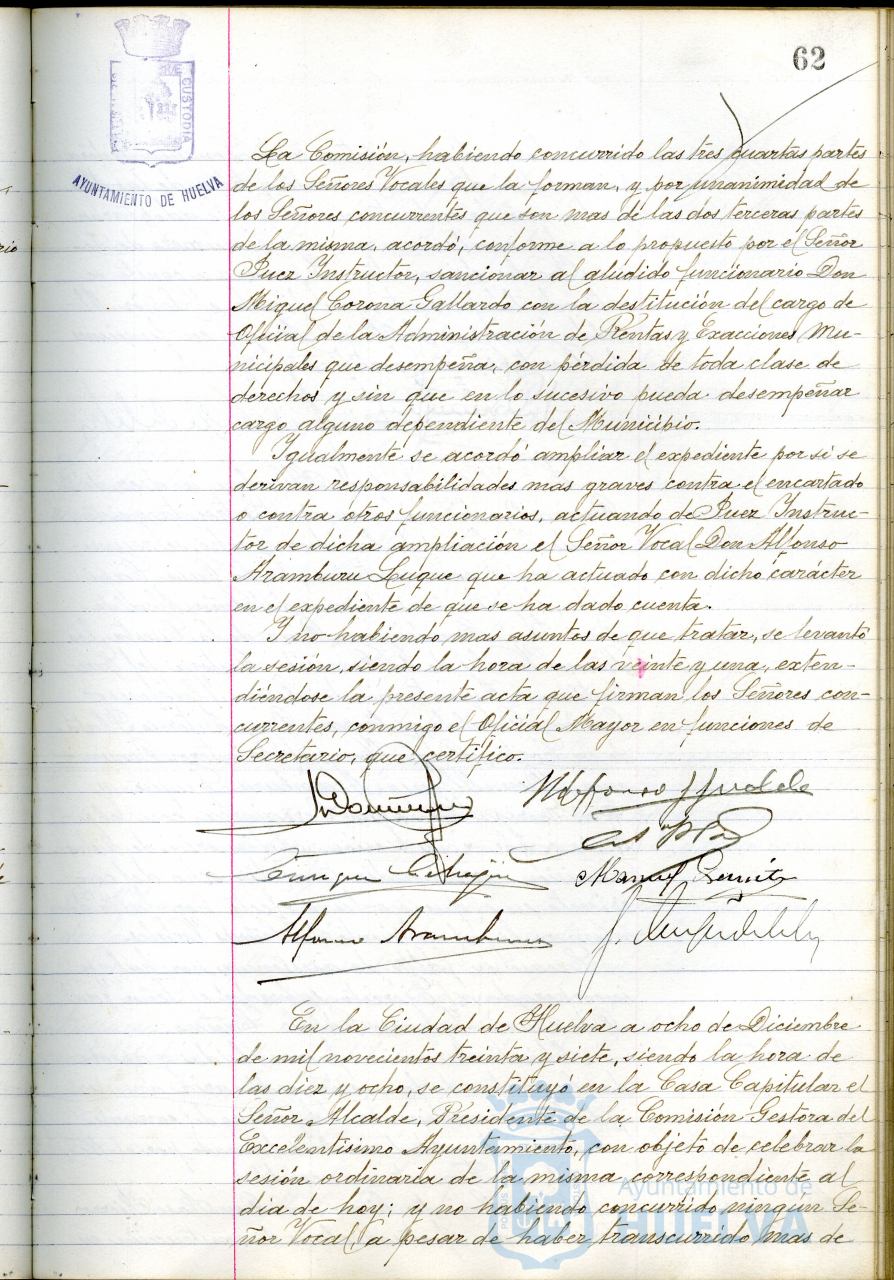 62
CUSTODIA
AYUNTAMIENTO DE HUELVA
La Comisión, habiendo concurrido las tres quartas partes
de los Señores Vocales que la forman, y por unanimidad de
los Señores concurrentes que son mas de las dos terceras partes
de la misma, acordó, conforme a lo propuesto por el Señor
Juez Instructor, sancionar al aludido funcionario Don
Miguel Corona Gallardo con la destitución del cargo de
Oficial de la Administración de Rentas y Exacciones Mu-
nicipales que desempeña, con pérdida de toda clase de
derechos y sin que en lo sucesivo pueda desempeñar
cargo alguno dependiente del Municipio.
Igualmente se acordó ampliar el expediente por si se
derivan responsabilidades mas graves contra el encartado
o contra otros funcionarios, actuando de Juez Instruc-
tor de dicha ampliación el Señor Vocal Don Alfonso
Aramburu Luque que ha actuado con dicho carácter
en el expediente de que se ha dado cuenta.
Y no habiendo mas asuntos de que tratar, se levantó
la sesión, siendo la hora de las veinte y una, exten-
diéndose la presente acta que firman los Señores con-
currentes, conmigo el Oficial Mayor en funciones de
Secretario, que certifico.
Alfonso
Enrique
Manuel
Alfonso Aramburu
En la Ciudad de Huelva a ocho de Diciembre
de mil novecientos treinta y siete, siendo la hora de
las diez y ocho, se constituyó en la Casa Capitular el
Señor Alcalde, Presidente de la Comisión Gestora del
Excelentísimo Ayuntamiento, con objeto de celebrar la
sesión ordinaria de la misma correspondiente al
dia de hoy; y no habiendo concurrido ningun Se-
ñor Vocal, a pesar de haber transcurrido mas de
Ayuntamiento de
HUELVA